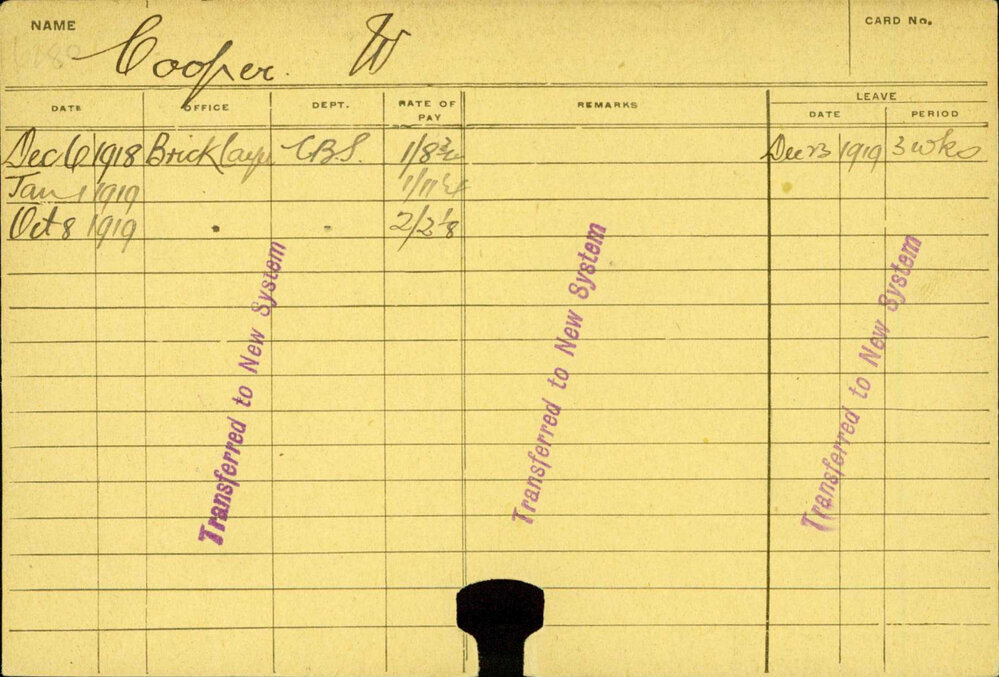 NAME Cooper W CARD No.
DATE OFFICE DEPT. RATE OF PAY REMARKS LEAVE
DATE PERIOD
Dec 6 1918 Bricklayer C.B.S. 1/8¾ Dec 23 1919 3 wks
Jan 1 1919 1/11¼
Oct 8 1919 " " 2/2⅛
Transferred to New System
Transferred to New System
Transferred to New System